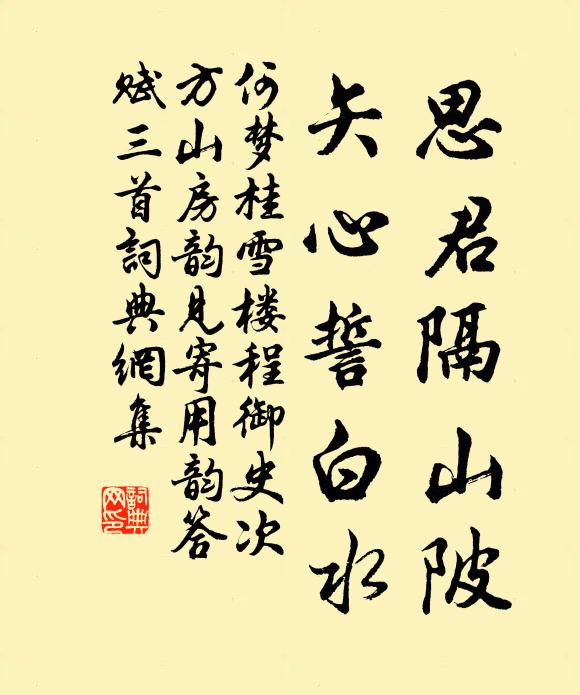 思君隔山陂
矢心誓白水
何梦桂雪楼程御史次
方山房韵见寄用韵答
赋三首詞典網集
詞典
网印